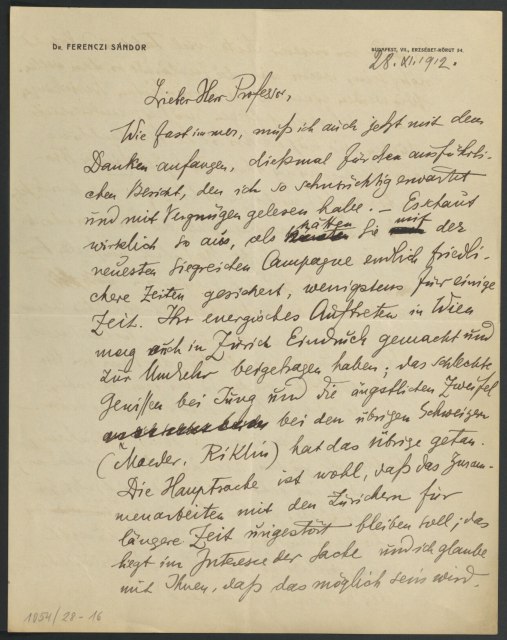 Dr. FERENCZI SÁNDOR
BUDAPEST, VII., ERZSÉBET-KÖRUT 54.
28. XI. 1912.
Lieber Herr Professor,
Wie fast immer, muß ich auch jetzt mit dem
Danken anfangen, dießmal für den ausführli-
chen Bericht, den ich so sehnsüchtig erwartet
und mit Vergnügen gelesen habe. – Es schaut
wirklich so aus, als hätten Sie mit der
neuesten siegreichen Campagne endlich friedli-
chere Zeiten gesichert, wenigstens für einige
Zeit. Ihr energisches Auftreten in Wien
mag auch in Zürich Eindruck gemacht und
zur Umkehr beigetragen haben; das schlechte
Gewissen bei Jung und die ängstlichen Zweifel
bei den übrigen Schweizern
(Maeder, Riklin) hat das übrige getan.
Die Hauptsache ist wohl, daß das Zusam-
menarbeiten mit den Zürichern für
längere Zeit ungestört bleiben soll; das
liegt im Interesse der Sache und ich glaube
mit Ihnen, daß das möglich sein wird.
1954/28-16